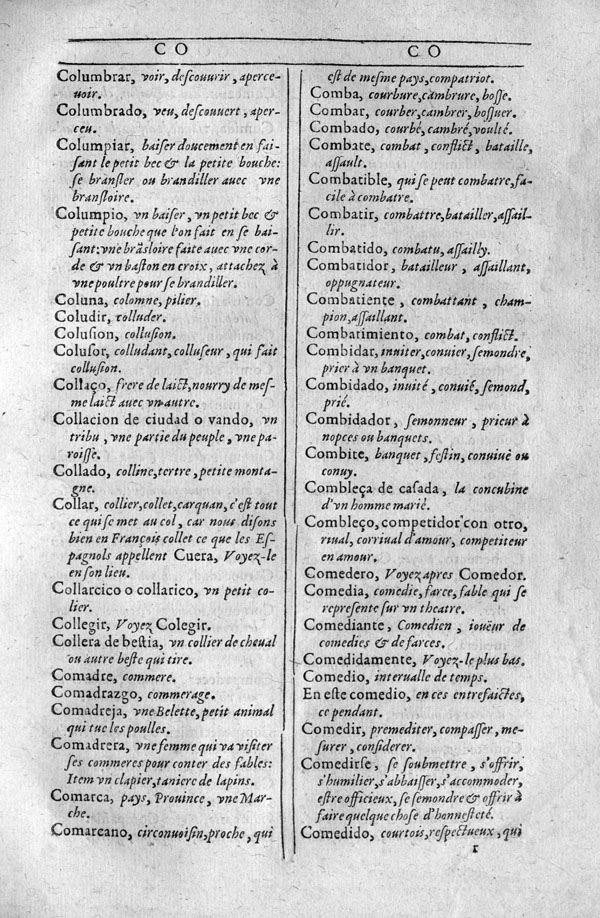 CO
Columbrar, voir, descouurir, aperce-
uoir.
Columbrado, veu, descouuert, aper-
ceu.
Columpiar, baiser doucement en fai-
sant le petit bec & la petite bouche:
se bransler ou brandiller auec vne
bransloire.
Columpio, vn baiser, vn petit bec &
petite bouche que l'on fait en se bai-
sant: vne brãsloire faite auec vne cor-
de & vn baston en croix, attachez à
vne poultre pour se brandiller.
Coluna, colomne, pilier.
Coludir, colluder.
Colusion, collusion.
Colusor, colludant, colluseur, qui fait
collusion.
Collaço, frere de laict, nourry de mes-
me laict auec vn autre.
Collacion de ciudad o vando, vn
tribu, vne partie du peuple, vne pa-
roisse.
Collado, colline, tertre, petite monta-
gne.
Collar, collier, collet, carquan, c'est tout
ce qui se met au col, car nous disons
bien en François collet ce que les Es-
pagnols appellent Cuera, Voyez-le
en son lieu.
Collarcico o collarico, vn petit co-
lier.
Collegir, Voyez Colegir.
Collera de bestia, vn collier de cheual
ou autre beste qui tire.
Comadre, commere.
Comadrazgo, commerage.
Comadreja, vne Belette, petit animal
qui tue les poulles.
Comadrera, vne femme qui va visiter
ses commeres pour conter des fables:
Item vn clapier, taniere de lapins.
Comarca, pays, Prouince, vne Mar-
che.
Comarcano, circonuoisin, proche, qui
CO
est de mesme pays, compatriot.
Comba, courbure, cambrure, bosse.
Combar, courber, cambrer, bossuer.
Combado, courbé, cambré, voulté.
Combate, combat, conflict, bataille,
assault.
Combatible, qui se peut combatre, fa-
cile à combatre.
Combatir, combattre, batailler, assail-
lir.
Combatido, combatu, assailly.
Combatidor, batailleur, assaillant,
oppugnateur.
Combatiente, combattant, cham-
pion, assaillant.
Combatimiento, combat, conflict.
Combidar, inuiter, conuier, semondre,
prier à vn banquet.
Combidado, inuité, conuié, semond,
prié.
Combidador, semonneur, prieur à
nopces ou banquets.
Combite, banquet, festin, conuiue ou
conuy.
Combleça de casada, la concubine
d'vn homme marié.
Combleço, competidor con otro,
riual, corriual d'amour, competiteur
en amour.
Comedero, Voyez apres Comedor.
Comedia, comedie, farce, fable qui se
represente sur vn theatre.
Comediante, Comedien, ioüeur de
comedies & de farces.
Comedidamente, Voyez-le plus bas.
Comedio, interualle de temps.
En este comedio, en ces entrefaictes,
ce pendant.
Comedir, premediter, compasser, me-
surer, considerer.
Comedirse, se soubmettre, s'offrir,
s'humilier, s'abbaisser, s'accommoder,
estre officieux, se semondre & offrir à
faire quelque chose d'honnesteté.
Comedido, courtois, respectueux, qui
r